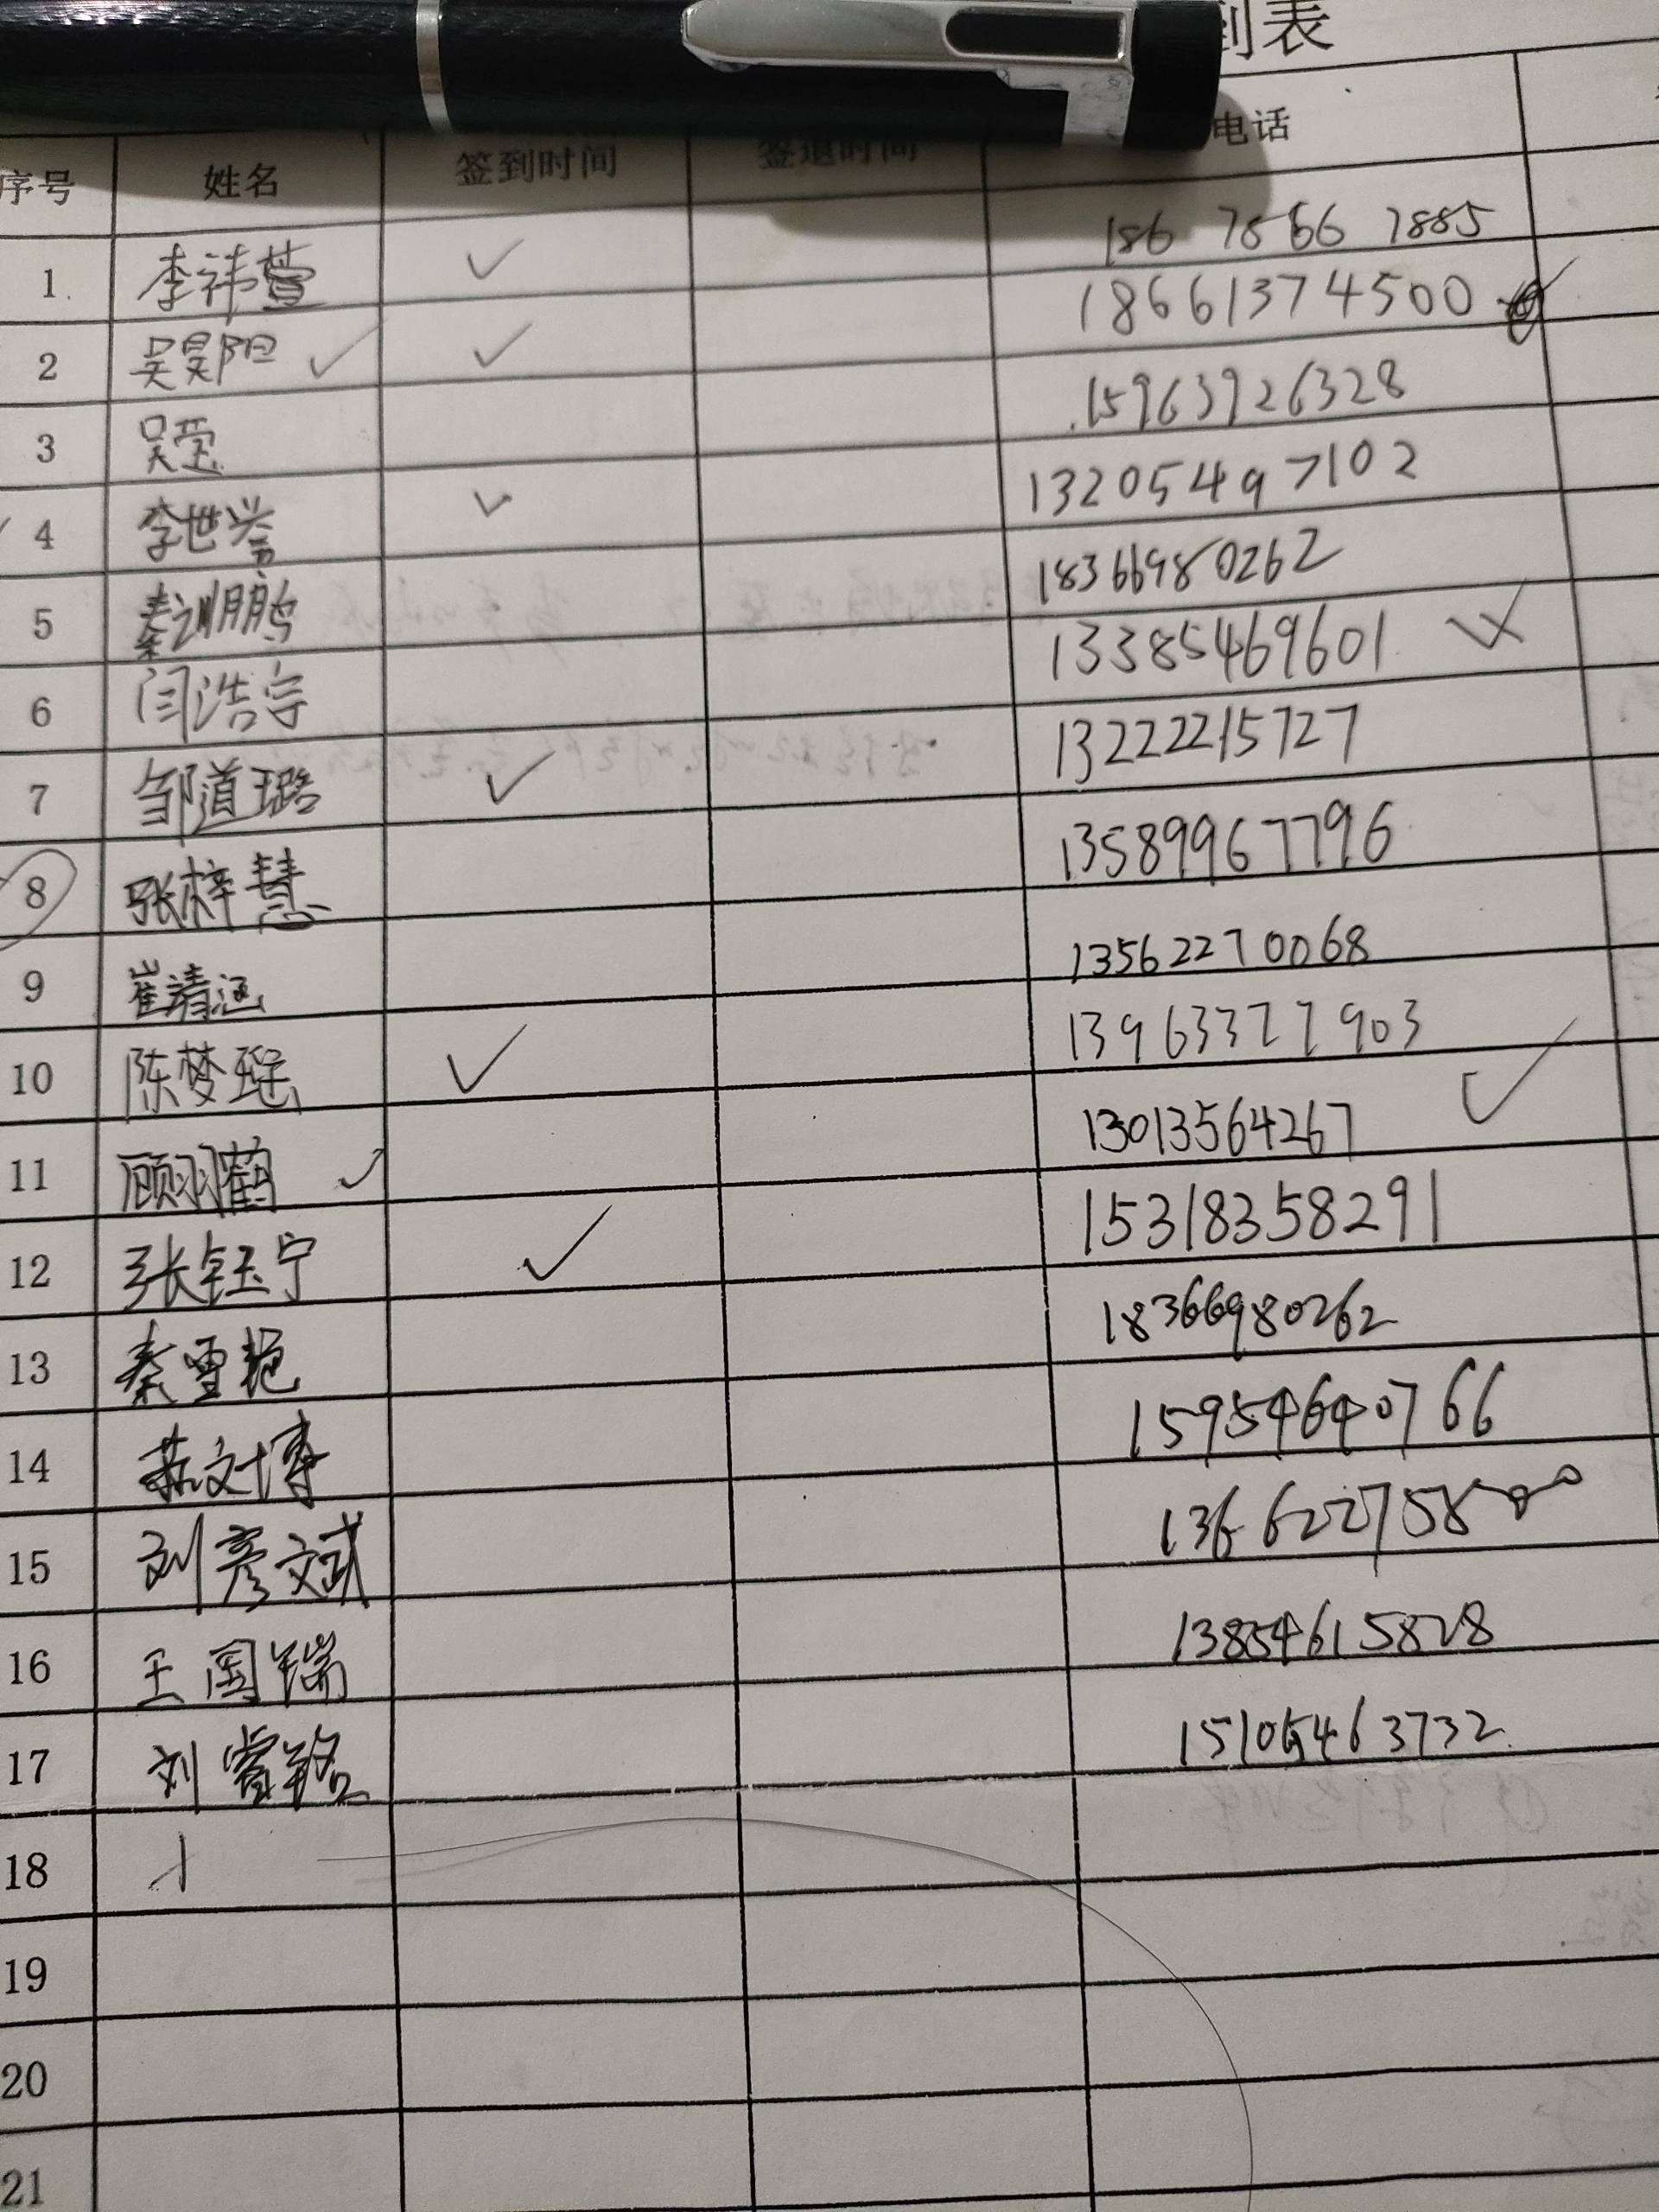 到表
序号 姓名 签到时间 签退时间 电话
1 李祎萱 ✓ 186 7866 7885
2 吴昊阳 ✓ ✓ 18661374500
3 吴莹 15963926328
4 李世誉 ✓ 13205497102
5 秦训鹏 18366980262
6 闫浩宇 13385469601
7 邹道璐 ✓ 13222215727
8 张梓慧 13589967796
9 崔靖涵 13562270068
10 陈梦瑶 ✓ 13963377903
11 顾羽鹤 ✓ 13013564267 ✓
12 张钰宁 ✓ 15318358291
13 秦雪艳 18366980262
14 苏文博 15954640766
15 刘彦斌
16 王国瑞 13854615828
17 刘睿铭 15105463732
18
19
20
21